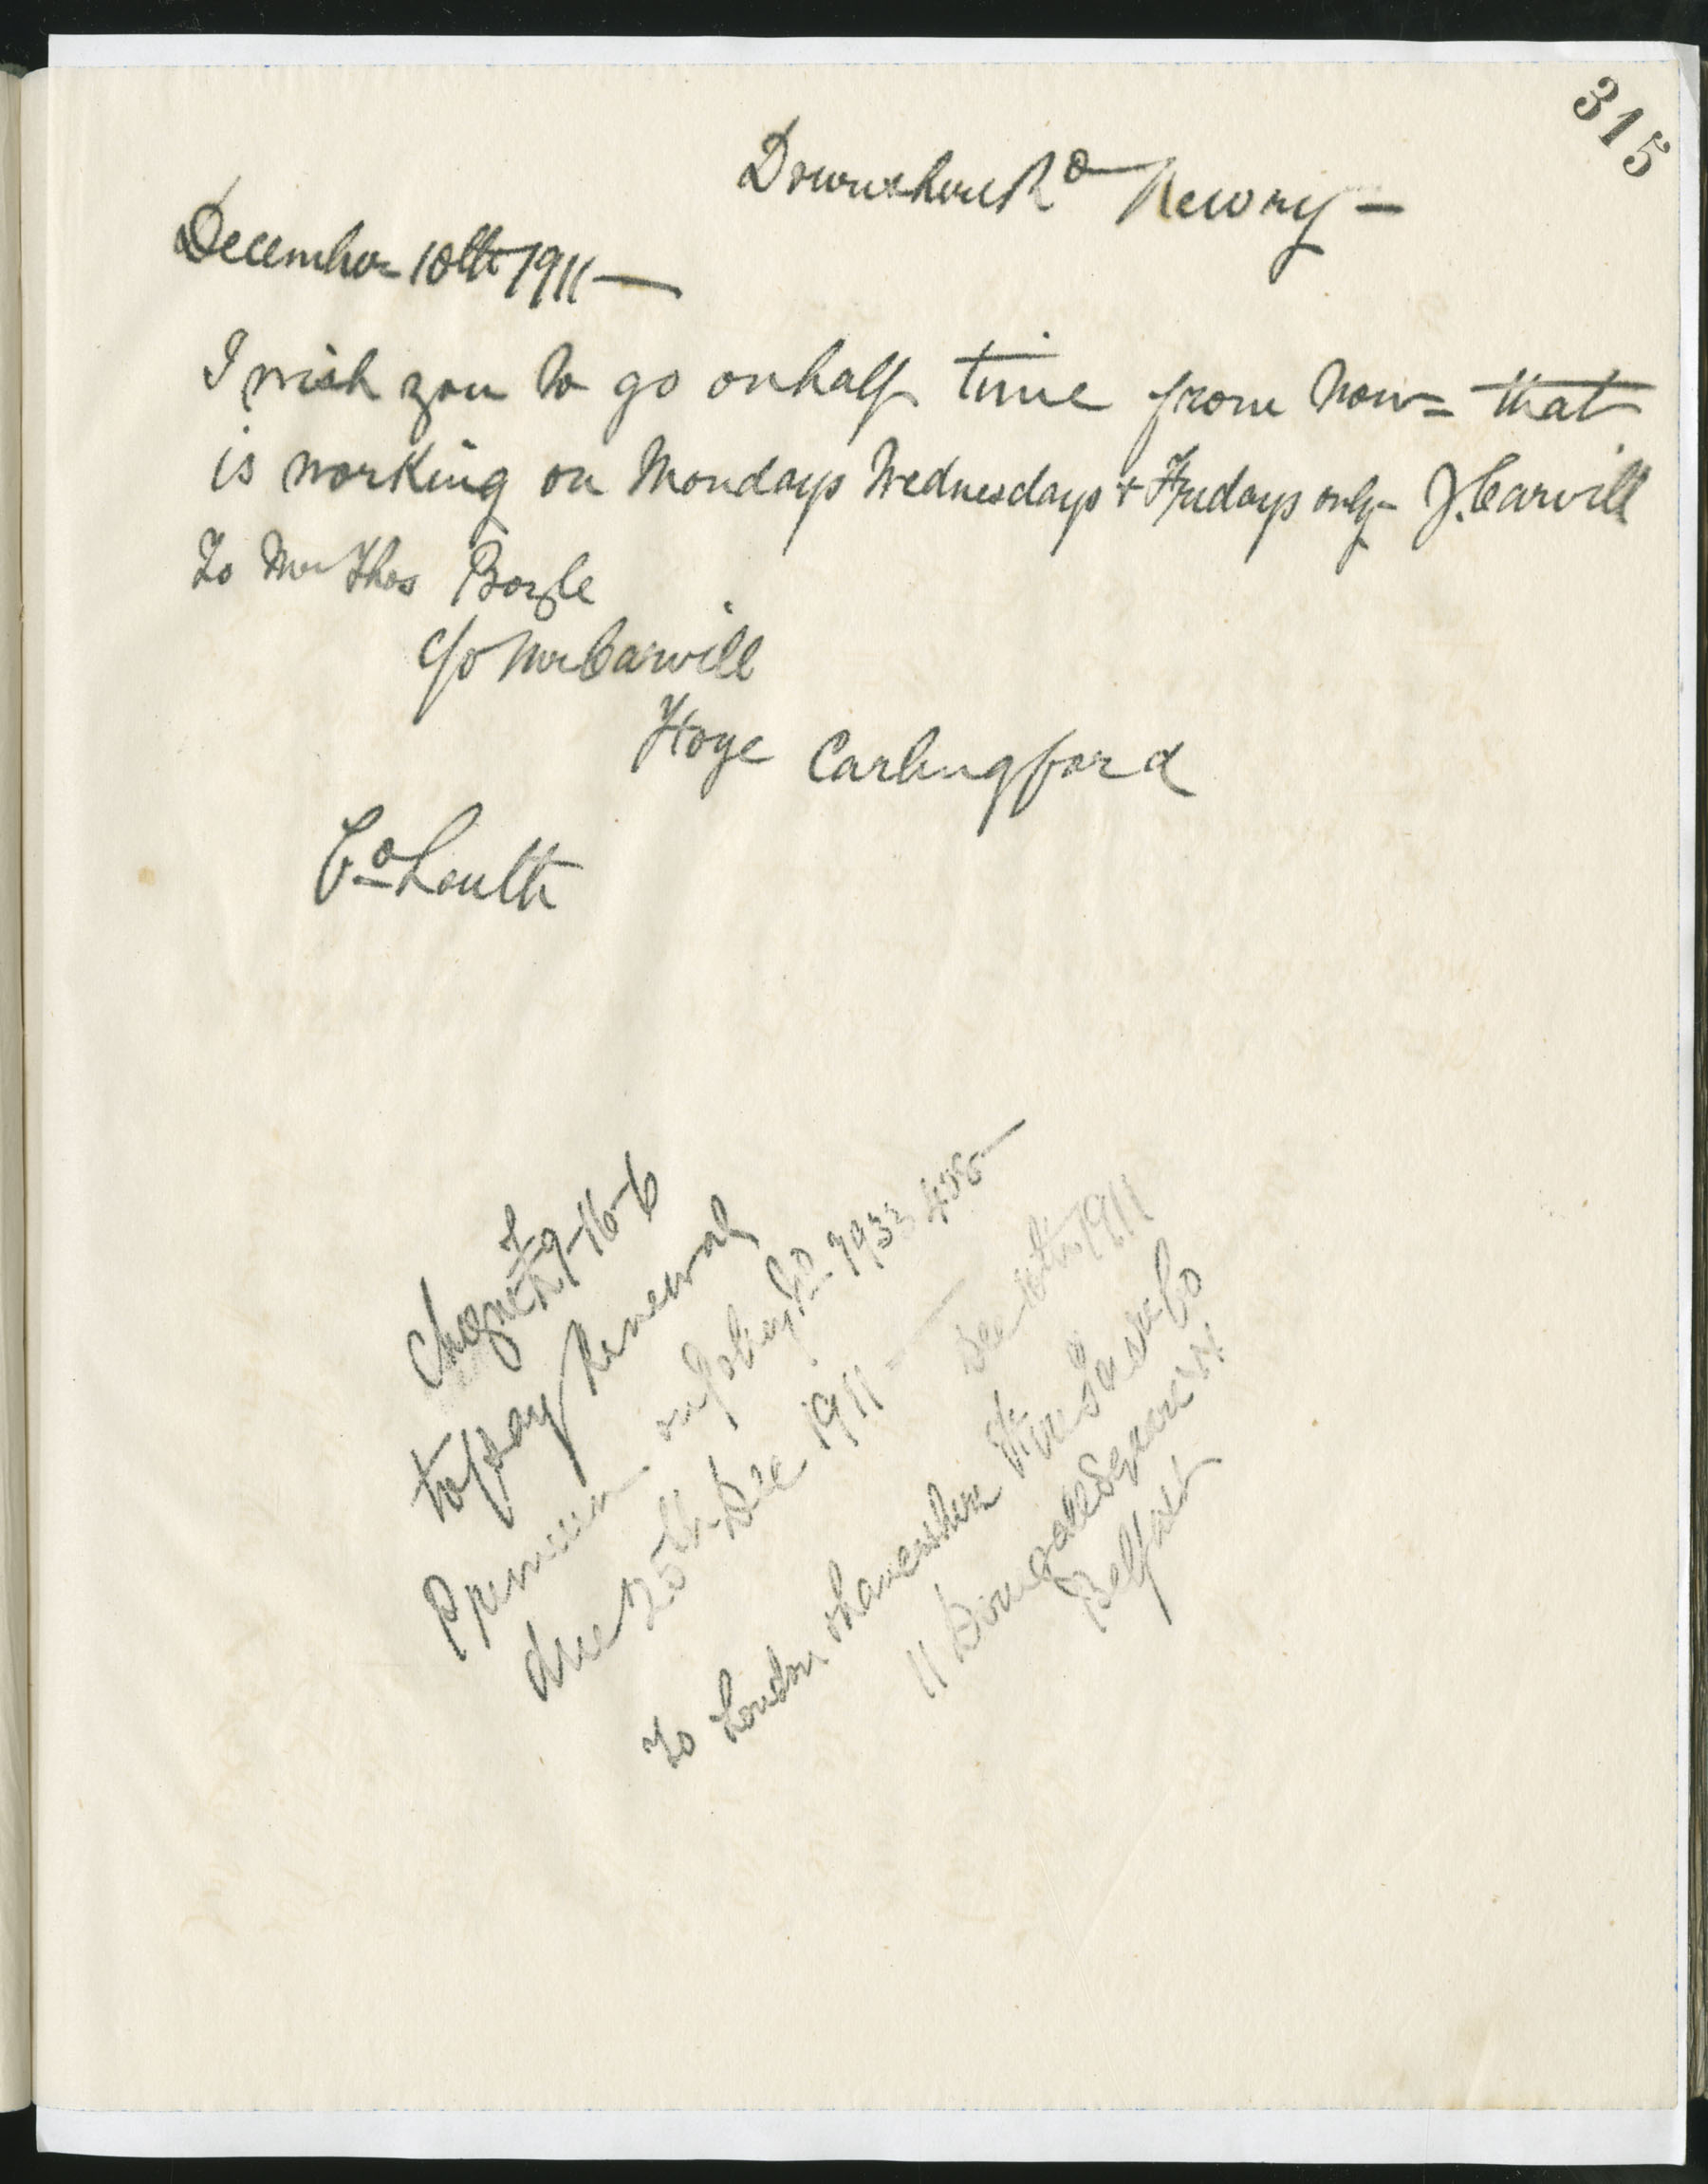 315
Downshire Rd Newry -
December 18th 1911 -
I wish you to go on half time from now = that
is working on Mondays Wednesdays + Fridays only - J. Carvill
To Mr Thos Boyle
c/o Mr Carvill
Carlingford
Co Louth
Cheque £9-16-6
to pay Renewal
Premium on Policy No 7933
due 25th Dec 1911 - Dec 1911
To London & Lancashire Fire Co
11 Donegall Square N
Belfast